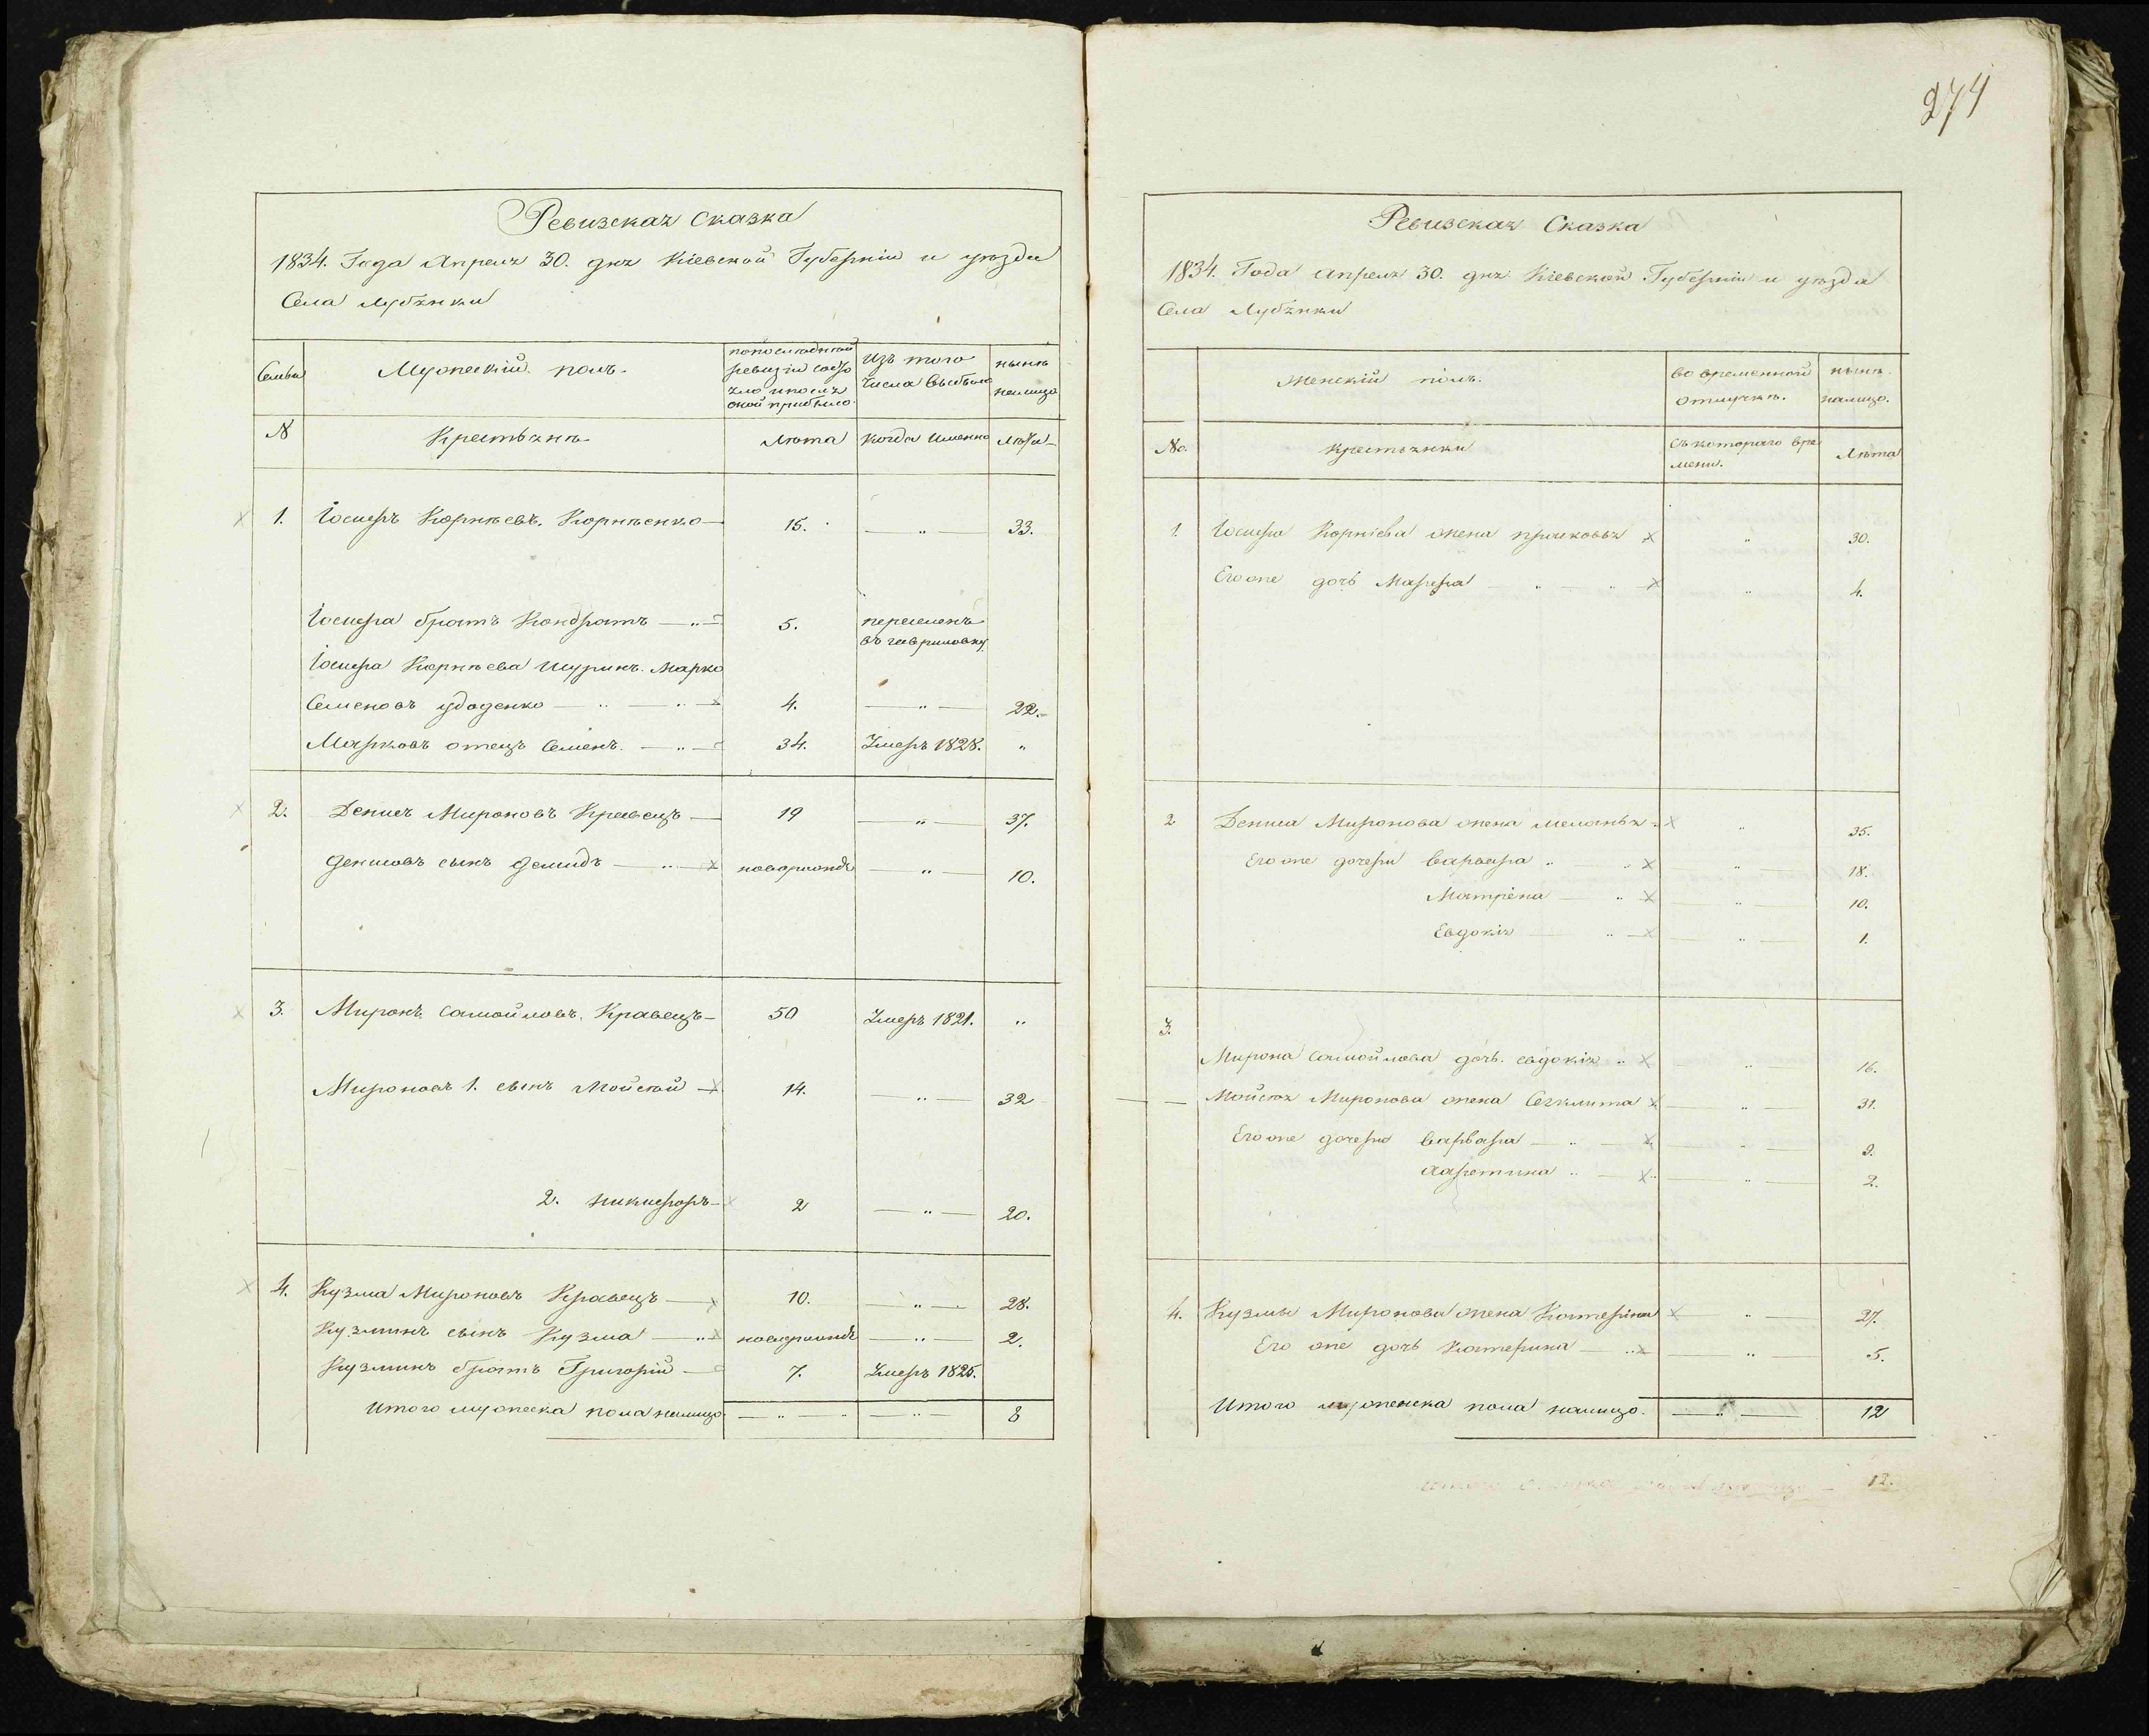 274
Ревизская Сказка
1834. Года Апреля 30. дня Кіевской Губерніи и уезда
Села Лубянки
Семьи
Мужескій полъ.
по последней
ревизіи состо
яло и после
оной прибыло
Изъ того
числа выбыло
ныне
налицо
№
Крестьяне
Лета
Когда именно
Лета
1. Іосифъ Корнеевъ. Корнеенко 15. 33.
Іосифа братъ Кондратъ 5. переселенъ
въ гавриловку
Іосифа Корнеева Шуринъ. Марко
Семеновъ удоденко 4. 22.
Марковъ отецъ Семенъ. 34. Умеръ 1828. "
2. Денисъ Мироновъ Кравецъ 19 37.
Денисовъ сынъ Демидъ новорожд 10.
3. Миронъ Самойловъ. Кравецъ 50 Умеръ 1821. "
Мироновъ 1. сынъ Мойсей 14. 32
2. Никифоръ 2 20.
4. Кузма Мироновъ Кравецъ 10. 28.
Кузминъ сынъ Кузма новорожд 2.
Кузминъ братъ Григорій 7. Умеръ 1825.
Итого мужеска пола налицо 8
Ревизская Сказка
1834. Года Апреля 30. дня Кіевской Губерніи и уезда
Села Лубянки
Женскій полъ.
во временной
отлучке.
ныне.
налицо.
No.
Крестьянки
съ котораго вре
мени.
Лета
1. Іосифа Корніева жена 30.
Его же дочь Марфа 4.
2 Дениса Миронова жена Меланья 35.
Его же дочери Варвара 18.
Матрена 10.
Евдокія 1.
3.
Мирона Самойлова дочь. евдокія 16.
Мойсея Миронова жена 31.
Его же дочери Варвара 9.
2.
4. Кузмы Миронова жена Катерина 27.
Его же дочь Катерина 5.
Итого женска пола налицо. 12
12.